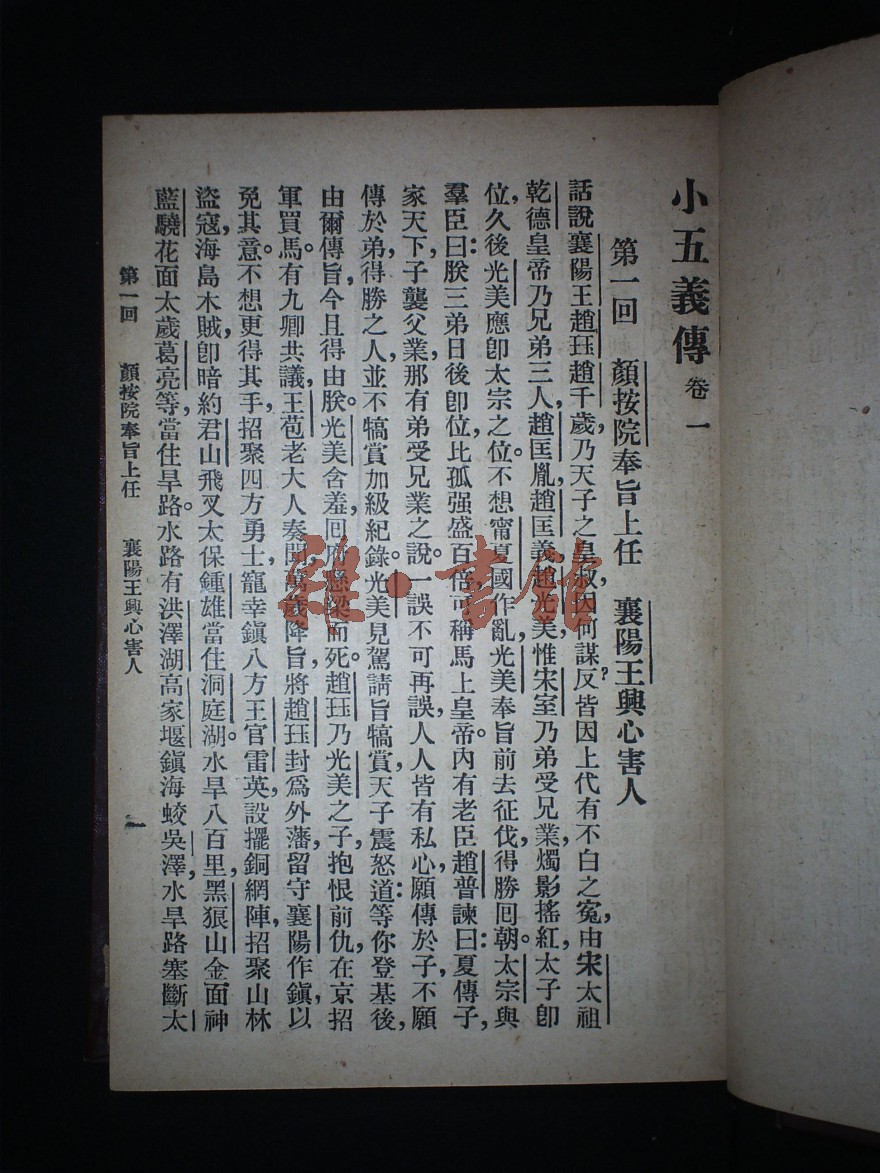 小五義傳 卷一
第一回 顏按院奉旨上任 襄陽王興心害人
話說襄陽王趙珏趙千歲，乃天子之皇叔，因何謀反？皆因上代有不白之冤，由宋太祖
乾德皇帝乃兄弟三人，趙匡胤，趙匡義，趙光美，惟宋室乃弟受兄業，燭影搖紅，太子卽
位，久後光美應卽太宗之位。不想甯夏國作亂，光美奉旨前去征伐，得勝囘朝。太宗與
羣臣曰：朕三弟日後卽位，比孤强盛百倍，可稱馬上皇帝。內有老臣趙普諫曰：夏傳子，
家天下，子襲父業，那有弟受兄業之說。一誤不可再誤，人人皆有私心，願傳於子，不願
傳於弟，得勝之人，並不犒賞加級紀錄。光美見駕請旨犒賞，天子震怒道：等你登基後，
由爾傳旨，今且得由朕。光美含羞，囘府懸梁而死。趙珏乃光美之子，抱恨前仇，在京招
軍買馬。有九卿共議，王苞老大人奏聞萬歲，降旨將趙珏封爲外藩，留守襄陽作鎭，以
免其意。不想更得其手，招聚四方勇士，寵幸鎭八方王官雷英，設擺銅網陣，招聚山林
盜寇，海島木賊，卽暗約君山飛叉太保鍾雄，當住洞庭湖。水旱八百里，黑狠山金面神
藍驍，花面太歲葛亮等，當住旱路。水路有洪澤湖高家堰鎭海蛟吳澤，水旱路塞斷，太
第一回 顏按院奉旨上任 襄陽王興心害人 一
雅·書館